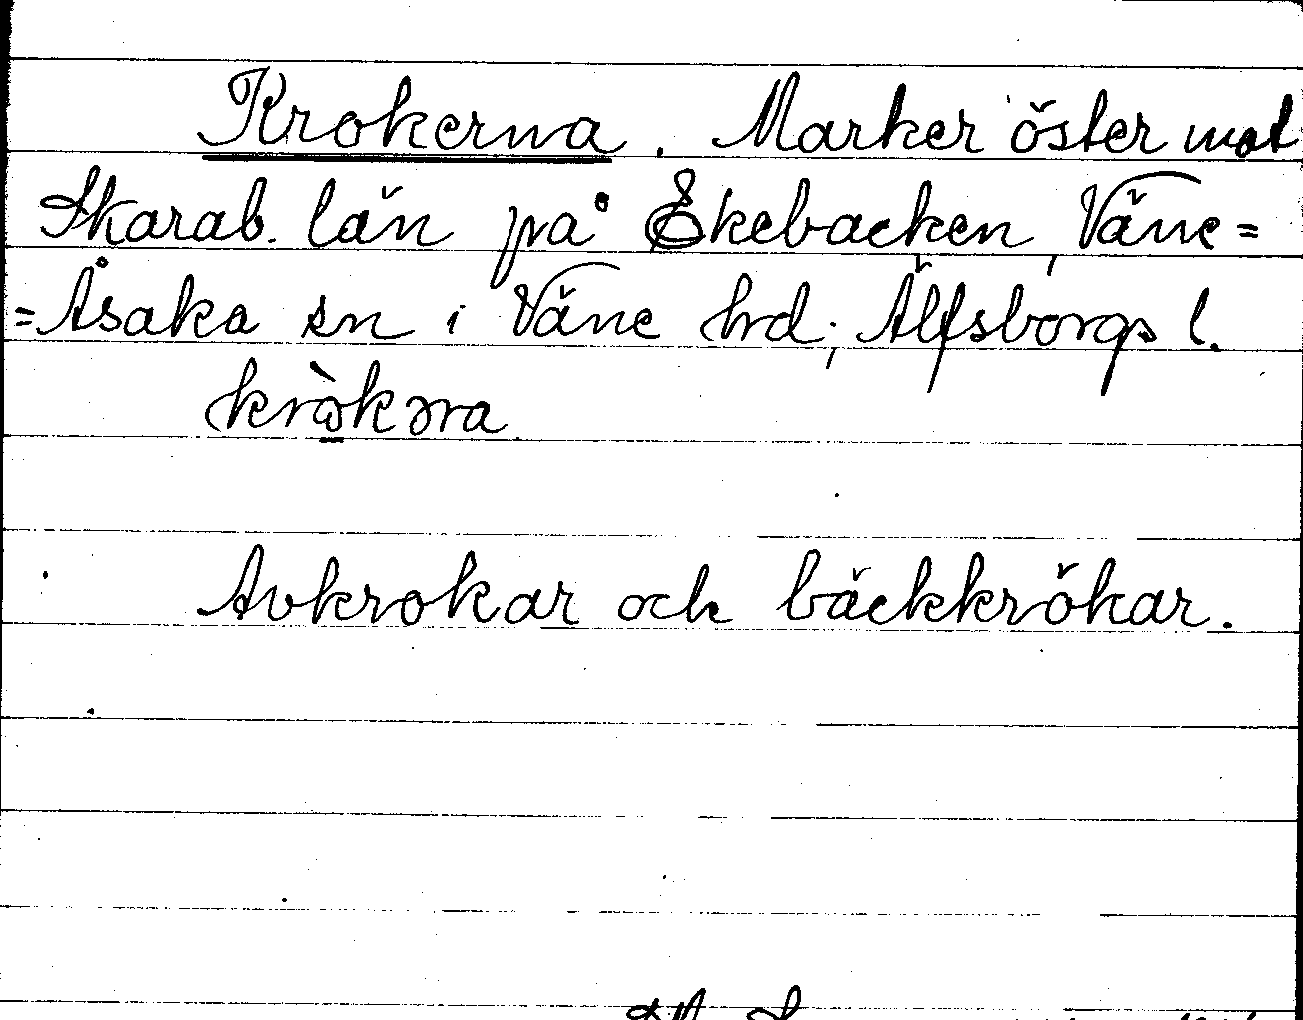 Krokerna. Marker öster mot
Skarab. län på Ekebacken Väne=
=Åsaka sn i Väne hrd; Älfsborgs l.
krò̲kəra
Avkrokar och bäckkrökar.